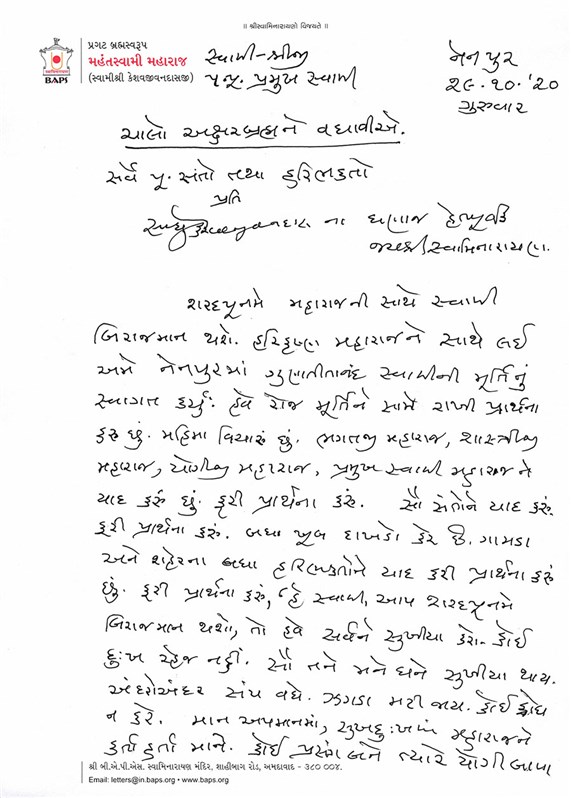 ॥ શ્રીસ્વામિનારાયણો વિજયતે ॥
પ્રગટ બ્રહ્મસ્વરૂપ
મહંતસ્વામી મહારાજ
(સ્વામીશ્રી કેશવજીવનદાસજી)
BAPS
સ્વામી-શ્રીજી
પ.પૂ. પ્રમુખ સ્વામી
નેનપુર
૨૯.૧૦.'૨૦
ગુરુવાર
ચાલો અક્ષરબ્રહ્મને વધાવીએ.
સર્વે પૂ. સંતો તથા હરિભક્તો
પ્રતિ
સાધુ કેશવજીવનદાસ ના ઘણાજ હેતપૂર્વક
જયશ્રીસ્વામિનારાયણ.
શરદપૂનમે મહારાજની સાથે સ્વામી
બિરાજમાન થશે. હરિકૃષ્ણ મહારાજને સાથે લઈ
અમે નેનપુરમાં ગુણાતીતાનંદ સ્વામીની મૂર્તિનું
સ્વાગત કર્યું. હવે રોજ મૂર્તિને સામે રાખી પ્રાર્થના
કરું છું. મહિમા વિચારું છું. ભગતજી મહારાજ, શાસ્ત્રીજી
મહારાજ, યોગીજી મહારાજ, પ્રમુખ સ્વામી મહારાજને
યાદ કરું છું. ફરી પ્રાર્થના કરું. સૌ સંતોને યાદ કરું.
ફરી પ્રાર્થના કરું. બધા ખૂબ દાખડો કરે છે. ગામડા
અને શહેરના બધા હરિભક્તોને યાદ કરી પ્રાર્થના કરું
છું. ફરી પ્રાર્થના કરું, 'હે સ્વામી, આપ શરદપૂનમે
બિરાજમાન થશો, તો હવે સર્વને સુખીયા કરો- કોઈ
દુઃખ રહેજ નહીં. સૌ તને મને ધને સુખીયા થાય.
અંદરોઅંદર સંપ વધે. ઝગડા મટી જાય. કોઈ ક્રોધ
ન કરે. માન અપમાનમાં, સુખદુઃખમાં મહારાજને
કર્તા હર્તા માને. કોઈ પ્રસંગ બને ત્યારે યોગી બાપા
શ્રી બી.એ.પી.એસ. સ્વામિનારાયણ મંદિર, શાહીબાગ રોડ, અમદાવાદ - ૩૮૦ ૦૦૪.
Email: letters@in.baps.org • www.baps.org